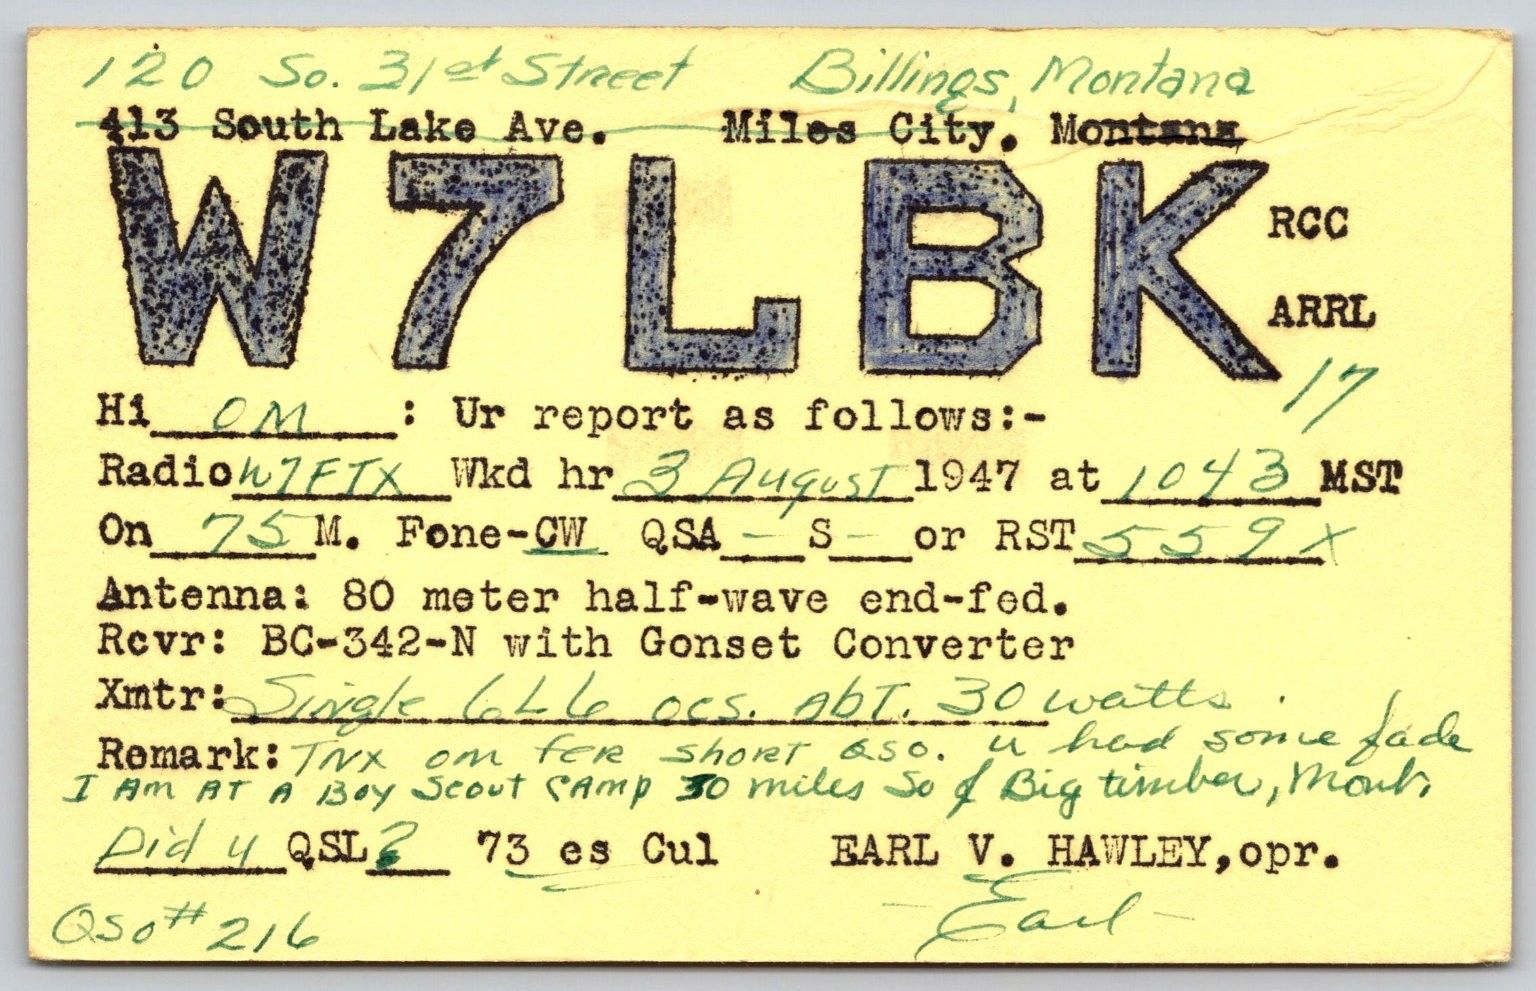 120 So. 31st Street Billings, Montana
413 South Lake Ave. Miles City. Montana
W7LBK
RCC
ARRL
17
Hi OM : Ur report as follows:-
Radio W7FTX Wkd hr 3 August 1947 at 1043 MST
On 75 M. Fone-CW QSA - S - or RST 559X
Antenna: 80 meter half-wave end-fed.
Rcvr: BC-342-N with Gonset Converter
Xmtr: Single 6L6 ocs. Abt. 30 watts.
Remark: TNX om fer short QSO. u had some fade
I Am AT A Boy Scout CAmp 30 miles So of Big timber, Mont.
Did u QSL? 73 es Cul EARL V. HAWLEY, opr.
- Earl -
QSO # 216